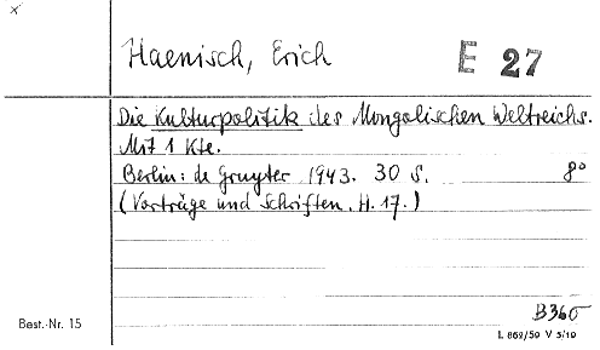 x
Haenisch, Erich E 27
Die Kulturpolitik des Mongolischen Weltreichs.
Mit 1 Kte.
Berlin: de Gruyter 1943. 30 S. 8°
(Vorträge und Schriften. H. 17.)
B 365
Best.-Nr. 15
L 869/50 V 5/10